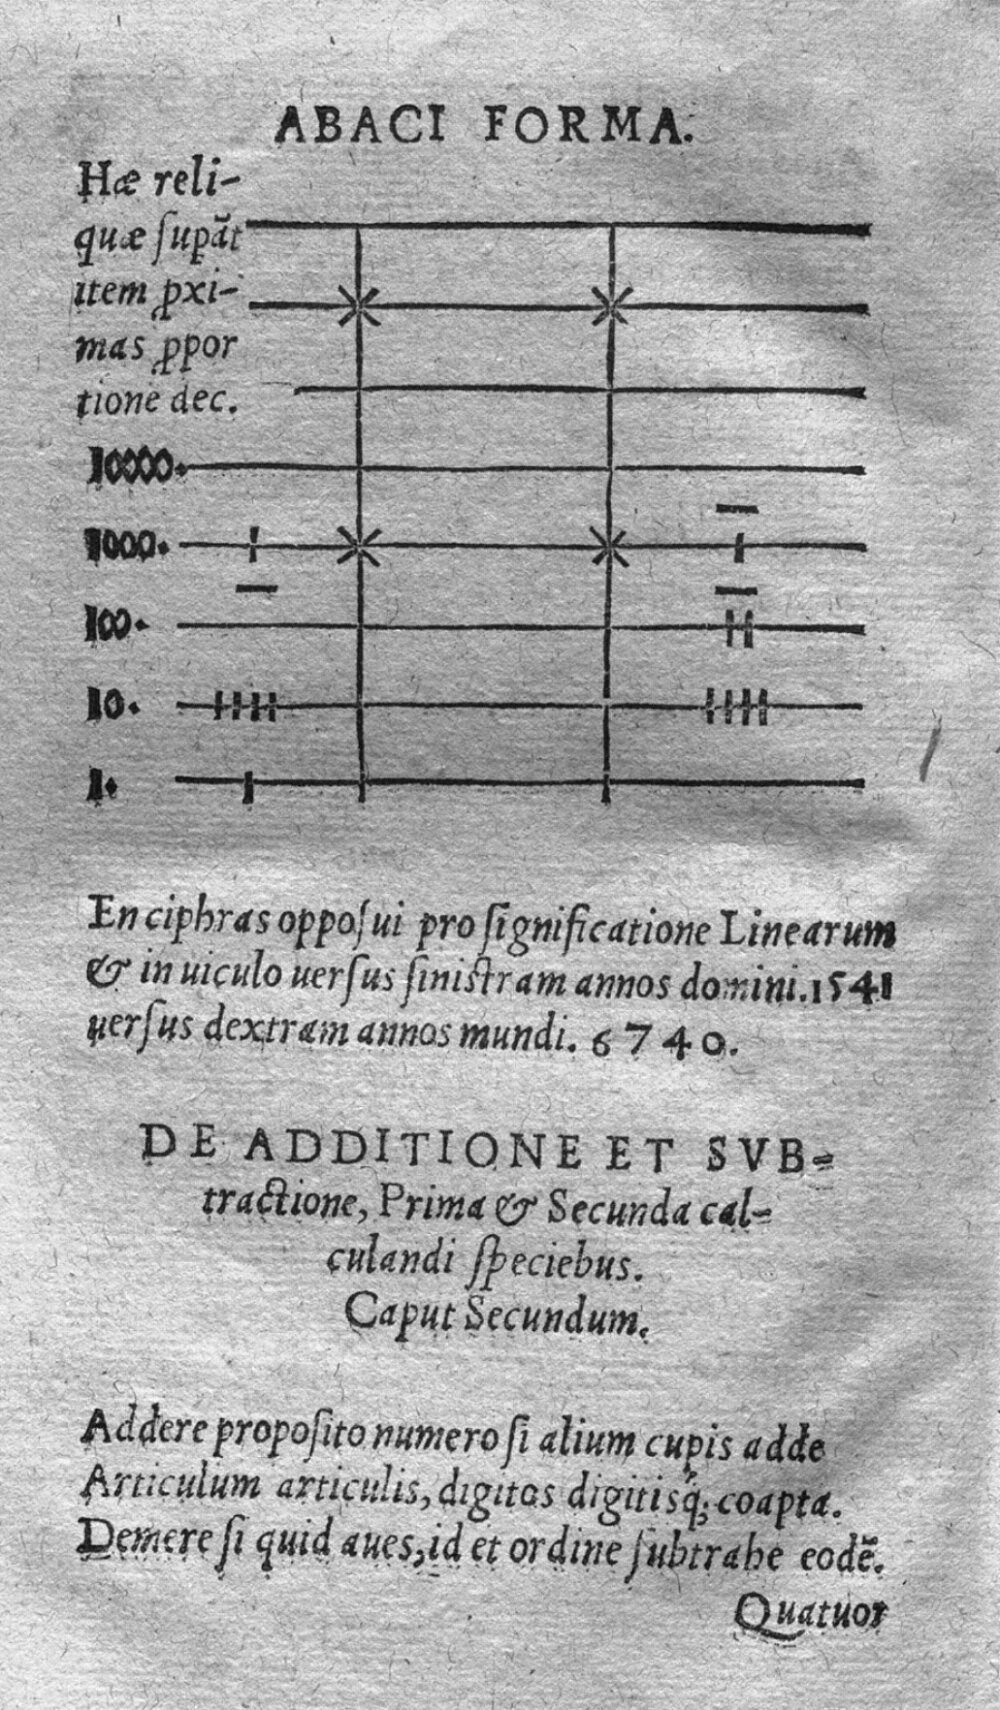 ABACI FORMA.
Hæ reli-
quæ ſupāt
item ꝓxi-
mas ꝓpor
tione dec.
10000.
1000.
100.
10.
1.
En ciphras oppoſui pro ſignificatione Linearum
& in uiculo uerſus ſiniſtram annos domini.1541
uerſus dextram annos mundi. 6740.
DE ADDITIONE ET SVB=
tractione, Prima & Secunda cal=
culandi ſpeciebus.
Caput Secundum.
Addere propoſito numero ſi alium cupis adde
Articulum articulis, digitos digitisq́; coapta.
Demere ſi quid aues, id et ordine ſubtrahe eodē.
Quatuor